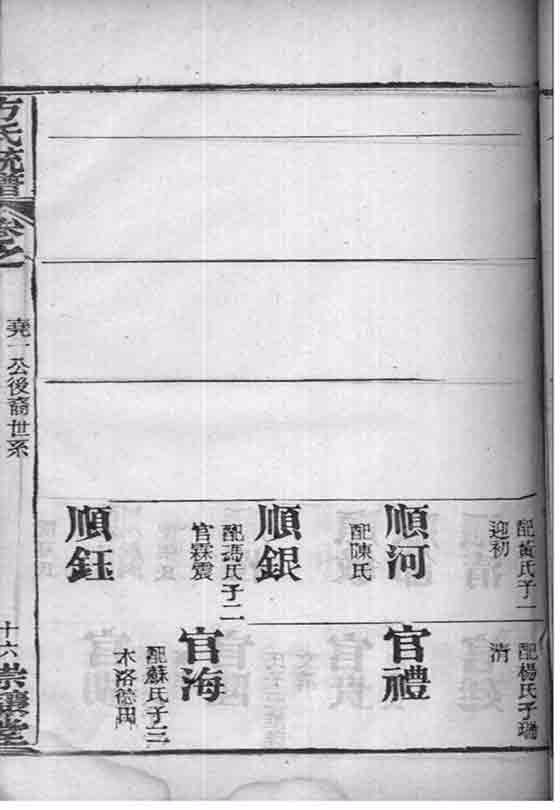 配黃氏子一
迎初
順河
配陳氏
順銀
配馮氏子二
官霖震
順鈺
配楊氏子瑞
清
官禮
官海
配蘇氏子三
木洛德
方氏統譜
卷之
堯一公後裔世系
十六
崇讓堂